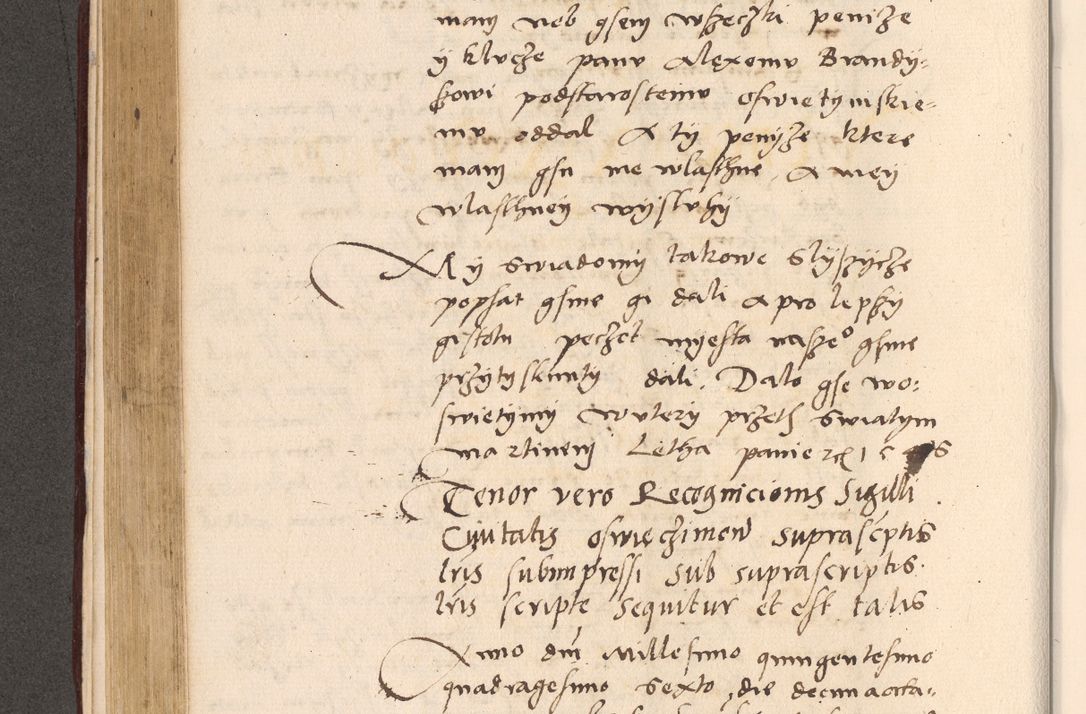 mam neb gsem wsseczki penize
y klucze panu Alexemu Brandy-
skowi podstarostemu oswietymskie-
mu oddal A ty penyze ktere
mam gsu me wlasthne, A mey
wlasthney wyslvhy
My swiadomy takowe slyssycze
popsat gsme gi dali A pro lepssy
gistotu peczet myesta nasseo gsme
przytysknuty dali. Dalo gse wo-
swietymy wutery przeth swiatym
martinem Letha panie
Tenor vero Recognicionis Sigilli
Civitatis oswieczimen suprascriptis
lris subimpressi sub suprascriptis
lris scripte sequitur et est talis
Anno dni Millesimo quingentesimo
quadragesimo sexto, die decima octa-